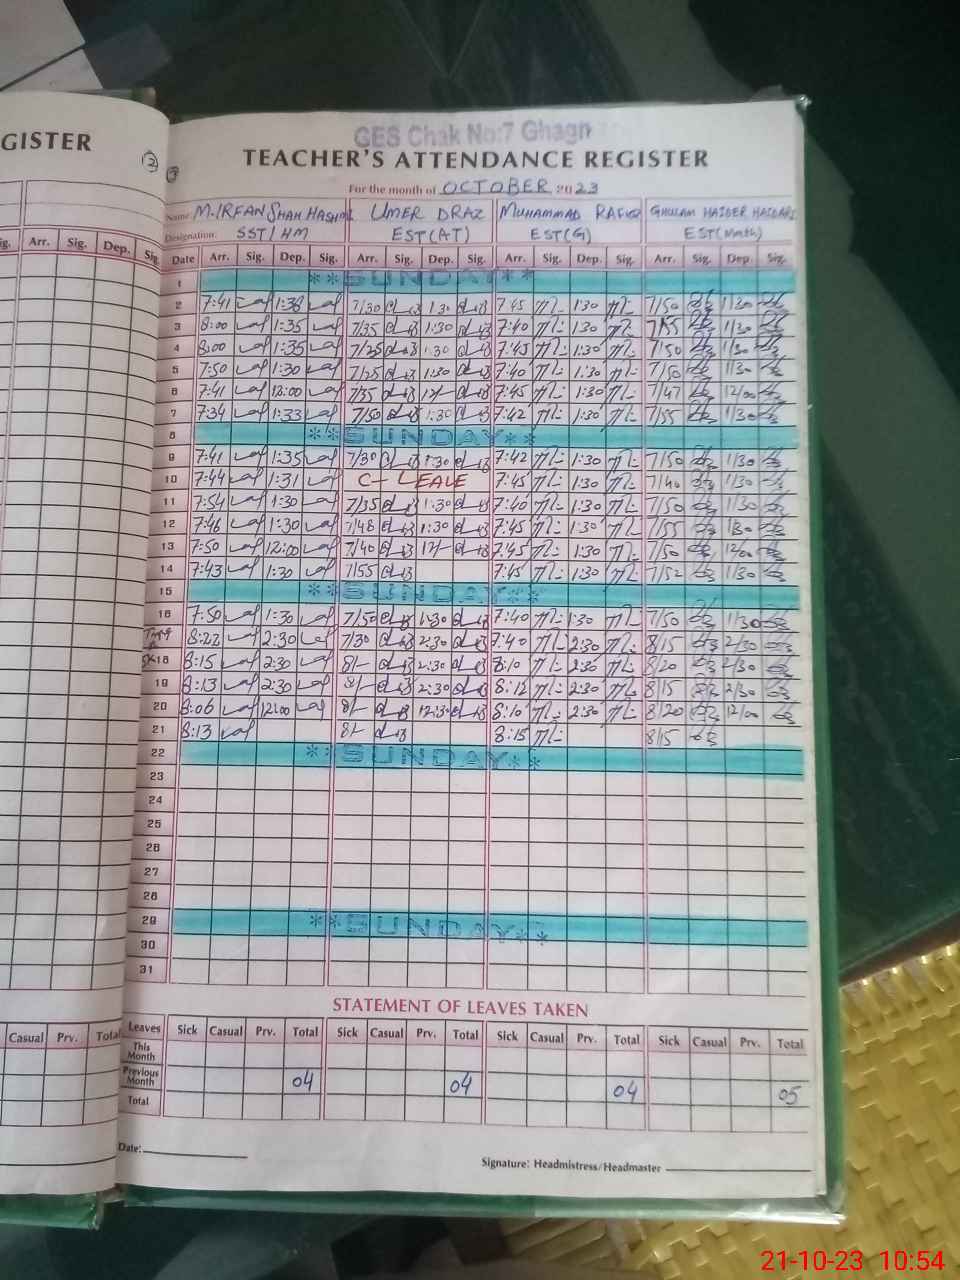 GISTER
GES Chak No:7 Ghagn
TEACHER'S ATTENDANCE REGISTER
For the month of OCTOBER 2023
Name: M.IRFAN SHAH HASHMI UMER DRAZ MUHAMMAD RAFIQ GHULAM HAIDER HAIDARI
Designation: SST/HM EST(AT) EST(G) EST(Math)
Arr. Sig. Dep. Sig. Date Arr. Sig. Dep. Sig. Arr. Sig. Dep. Sig. Arr. Sig. Dep. Sig. Arr. Sig. Dep. Sig.
1 **SUNDAY**
2 7:41 1:38 7/30 1:30 7:45 1:30 7/50 1/30
3 8:00 1:35 7/35 1:30 7:40 1:30 7/55 1/30
4 8:00 1:35 7/25 1:30 7:45 1:30 7/50 1/30
5 7:50 1:30 7/25 1:30 7:40 1:30 7/50 1/30
6 7:41 12:00 7/35 12/- 7:45 1:30 7/47 12/00
7 7:34 1:33 7/50 1:30 7:42 1:30 7/55 1/30
8 **SUNDAY**
9 7:41 1:35 7/30 1:30 7:42 1:30 7/50 1/30
10 7:44 1:31 C-LEAVE 7:45 1:30 7/40 1/30
11 7:54 1:30 7/35 1:30 7:40 1:30 7/50 1/30
12 7:46 1:30 7/48 1:30 7:45 1:30 7/55 1/30
13 7:50 12:00 7/40 12/- 7:45 1:30 7/50 12/00
14 7:43 1:30 7/55 7:45 1:30 7/52 1/30
15 **SUNDAY**
16 7:50 1:30 7/50 1:30 7:40 1:30 7/50 1/30
8:22 2:30 7/30 2:30 7:40 2:30 8/15 2/30
18 8:15 2:30 8/- 2:30 8:10 2:30 8/20 2/30
19 8:13 2:30 8/- 2:30 8:12 2:30 8/15 2/30
20 8:06 12:00 8/- 12:30 8:10 2:30 8/20 12/00
21 8:13 8/- 8:15 8/15
22 **SUNDAY**
23
24
25
26
27
28
29 **SUNDAY**
30
31
STATEMENT OF LEAVES TAKEN
Casual Prv. Total Leaves Sick Casual Prv. Total Sick Casual Prv. Total Sick Casual Prv. Total Sick Casual Prv. Total
This Month
Previous Month 04 04 04 05
Total
Date:
Signature: Headmistress/Headmaster
21-10-23 10:54